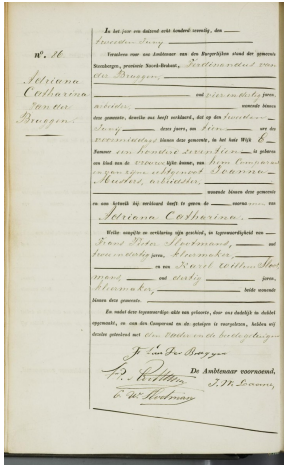 n°. 86
Adriana
Catharina
van der
Bruggen
In het jaar een duizend acht honderd zeventig, den
tweeden Juny
Verscheen voor ons Ambtenaar van den Burgerlijken stand der gemeente
Steenbergen, provincie Noord-Braband, Ferdinandus van
der Bruggen,
oud vier en dertig jaren,
arbeider wonende binnen
deze gemeente, dewelke ons heeft verklaard, dat op den
Juny dezes jaars, om tien ure des
voormiddags binnen deze gemeente, in het huis Wijk E
Nummer een honderd zeventien is geboren
een kind van de vrouwelijke kunne, van hem Comparant
en van zijne echtgenoot Joanna
Musters, arbeidster,
wonende binnen deze gemeente
en aan hetwelk hij verklaard heeft te geven de voorna van
Adriana Catharina.
Welke aangifte en verklaring zijn geschied, in tegenwoordigheid van
Frans Pieter Slootmans, oud
twee en dertig jaren, kleermaker,
en van Karel Willem Sloot
mans, oud dertig jaren,
kleermaker, beide wonende
binnen deze gemeente.
En nadat deze tegenwoordige akte van geboorte, door ons dadelijk in dubbel
opgemaakt, en aan den Comparant en de getuigen is voorgelezen, hebben wij
dezelve geteekend met den Vader en de beide getuigen
F Van Der Bruggen
De Ambtenaar voornoemd,